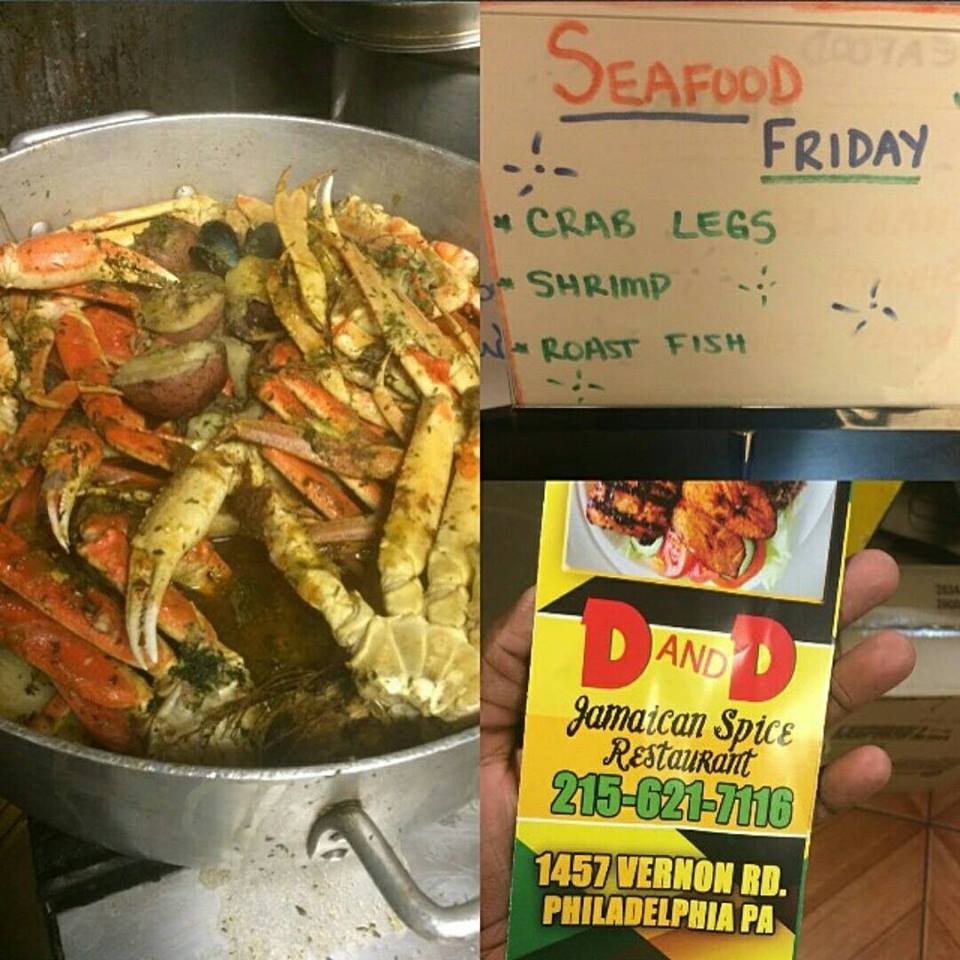 SEAFOOD
FRIDAY
* CRAB LEGS
* SHRIMP
* ROAST FISH
D AND D
Jamaican Spice
Restaurant
215-621-7116
1457 VERNON RD.
PHILADELPHIA PA